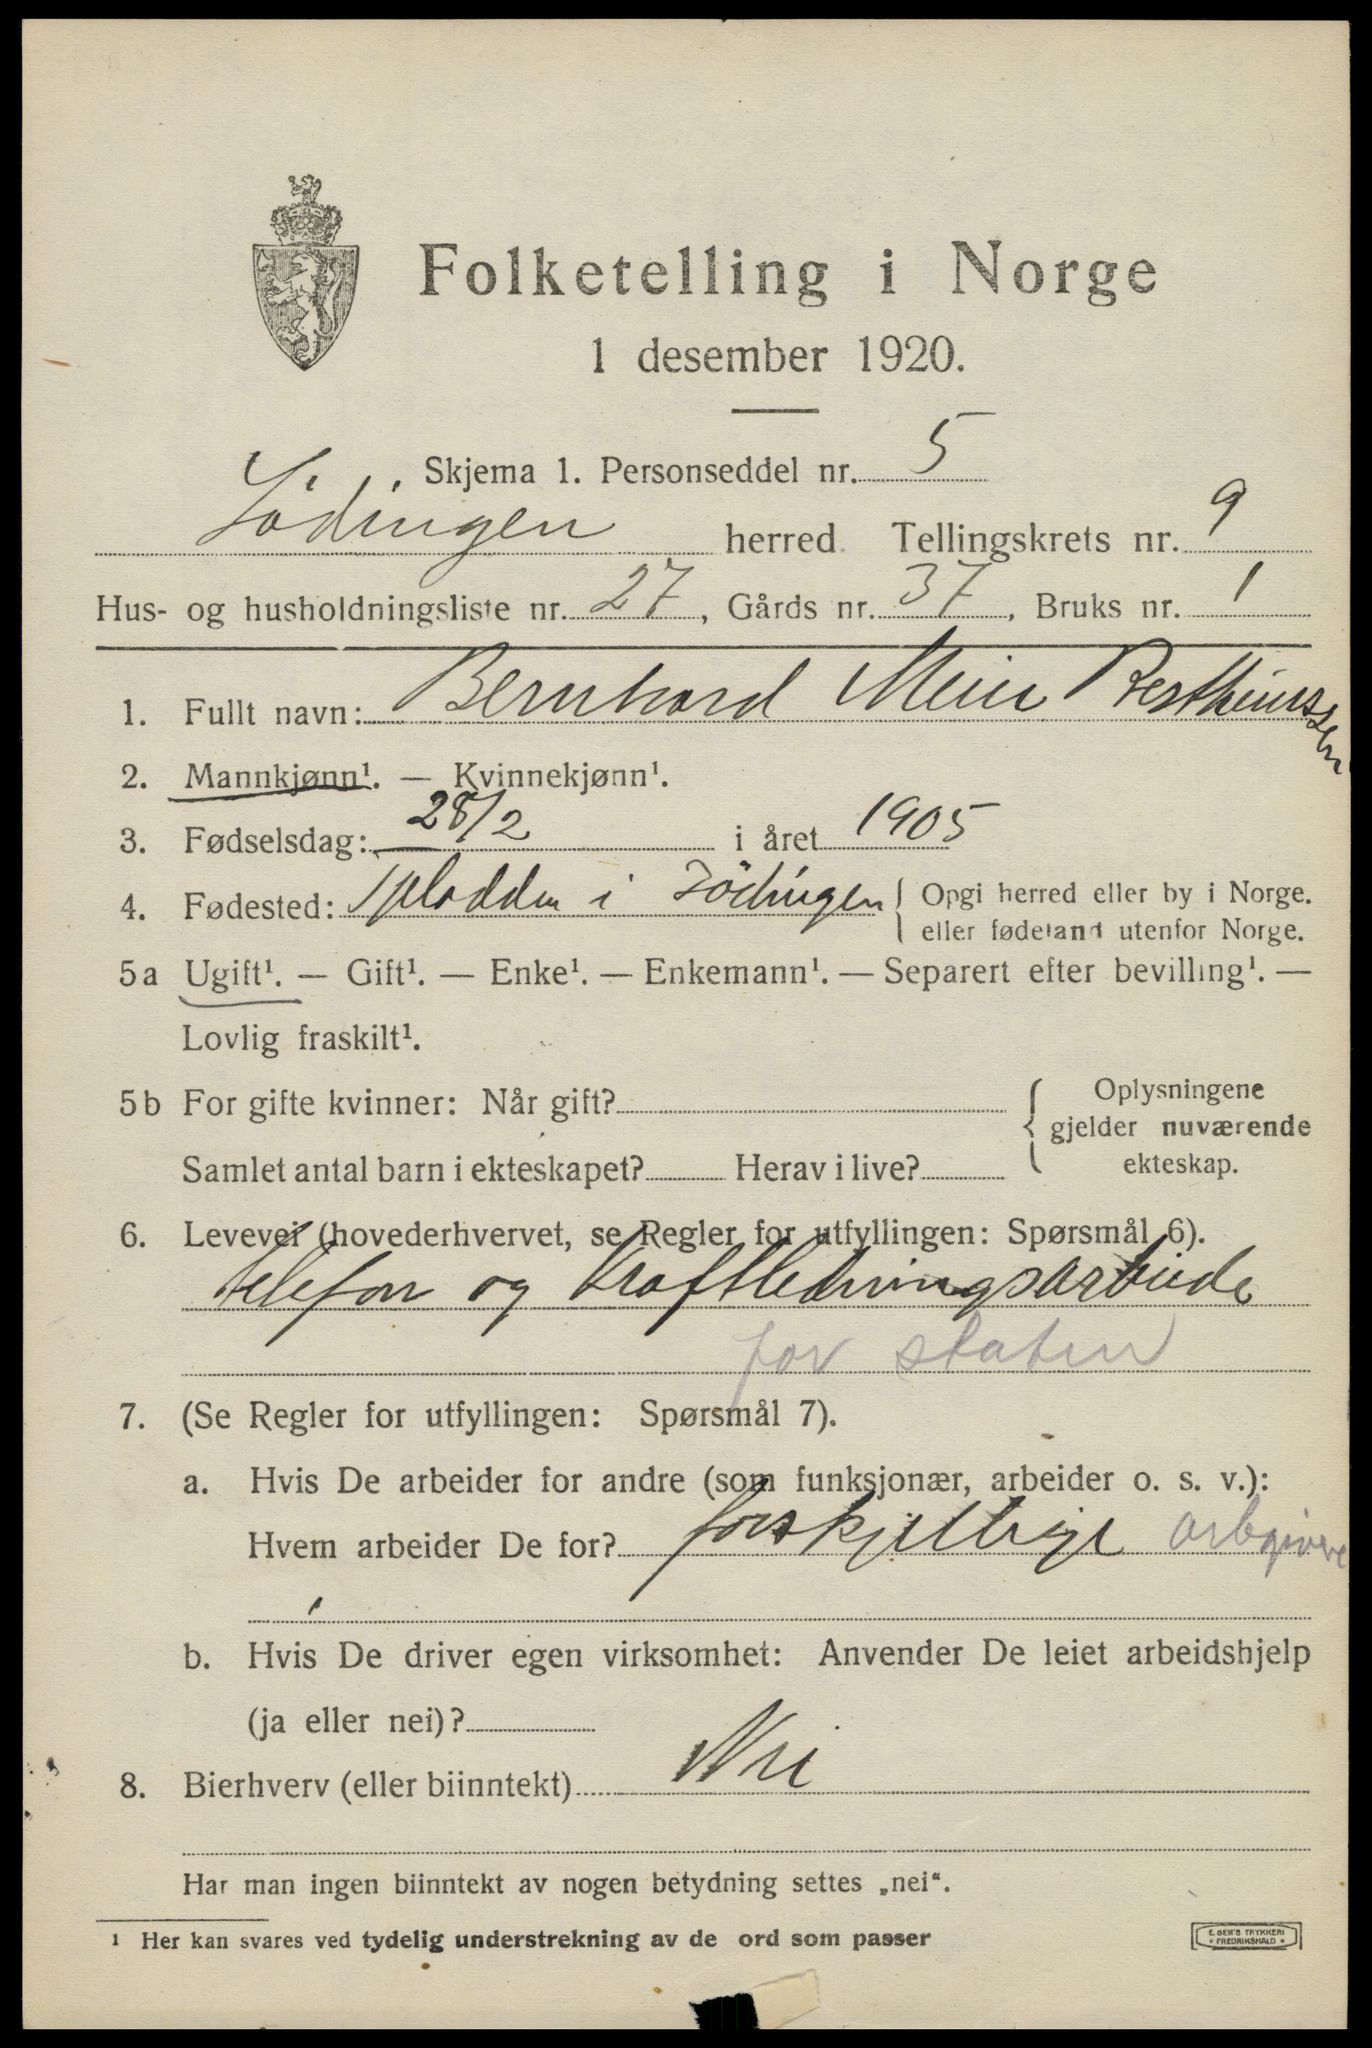 Folketelling i Norge
1 desember 1920.
Skjema 1. Personseddel nr. 5
Lödingen herred. Tellingskrets nr. 9
Hus- og husholdningsliste nr. 27, Gårds nr. 37, Bruks nr. 1
1. Fullt navn: Bernhard Meier Bertheussen
2. Mannkjønn¹. — Kvinnekjønn¹.
3. Fødselsdag: 28/2 i året 1905
4. Fødested: i Lödingen { Opgi herred eller by i Norge.
eller fødeland utenfor Norge.
5a Ugift¹. — Gift¹. — Enke¹. — Enkemann¹. — Separert efter bevilling¹. —
Lovlig fraskilt¹.
5b For gifte kvinner: Når gift? { Oplysningene
gjelder nuværende
Samlet antal barn i ekteskapet? Herav i live? ekteskap.
6. Levevei (hovederhvervet, se Regler for utfyllingen: Spørsmål 6).
telefon og kraftledningsarbeide
for staten
7. (Se Regler for utfyllingen: Spørsmål 7).
a. Hvis De arbeider for andre (som funksjonær, arbeider o. s. v.):
Hvem arbeider De for? forskjellige arbgivere
b. Hvis De driver egen virksomhet: Anvender De leiet arbeidshjelp
(ja eller nei)?
8. Bierhverv (eller biinntekt) Nei
Har man ingen biinntekt av nogen betydning settes „nei“.
¹ Her kan svares ved tydelig understrekning av de ord som passer
E. SEM'S TRYKKERI
FREDRIKSHALD